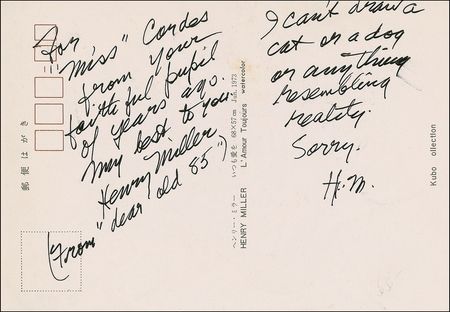 For
"Miss" Cordes
from your
faithful pupil
of years ago.
My best to you
Henry Miller
(From "dear old 85")
I can't draw a
cat or a dog
or anything
resembling
reality.
Sorry.
H.M.
郵便はがき
ヘンリー・ミラー いつも愛を 68×57cm Jan. 1973
HENRY MILLER L'Amour Toujours watercolor
Kubo ollection